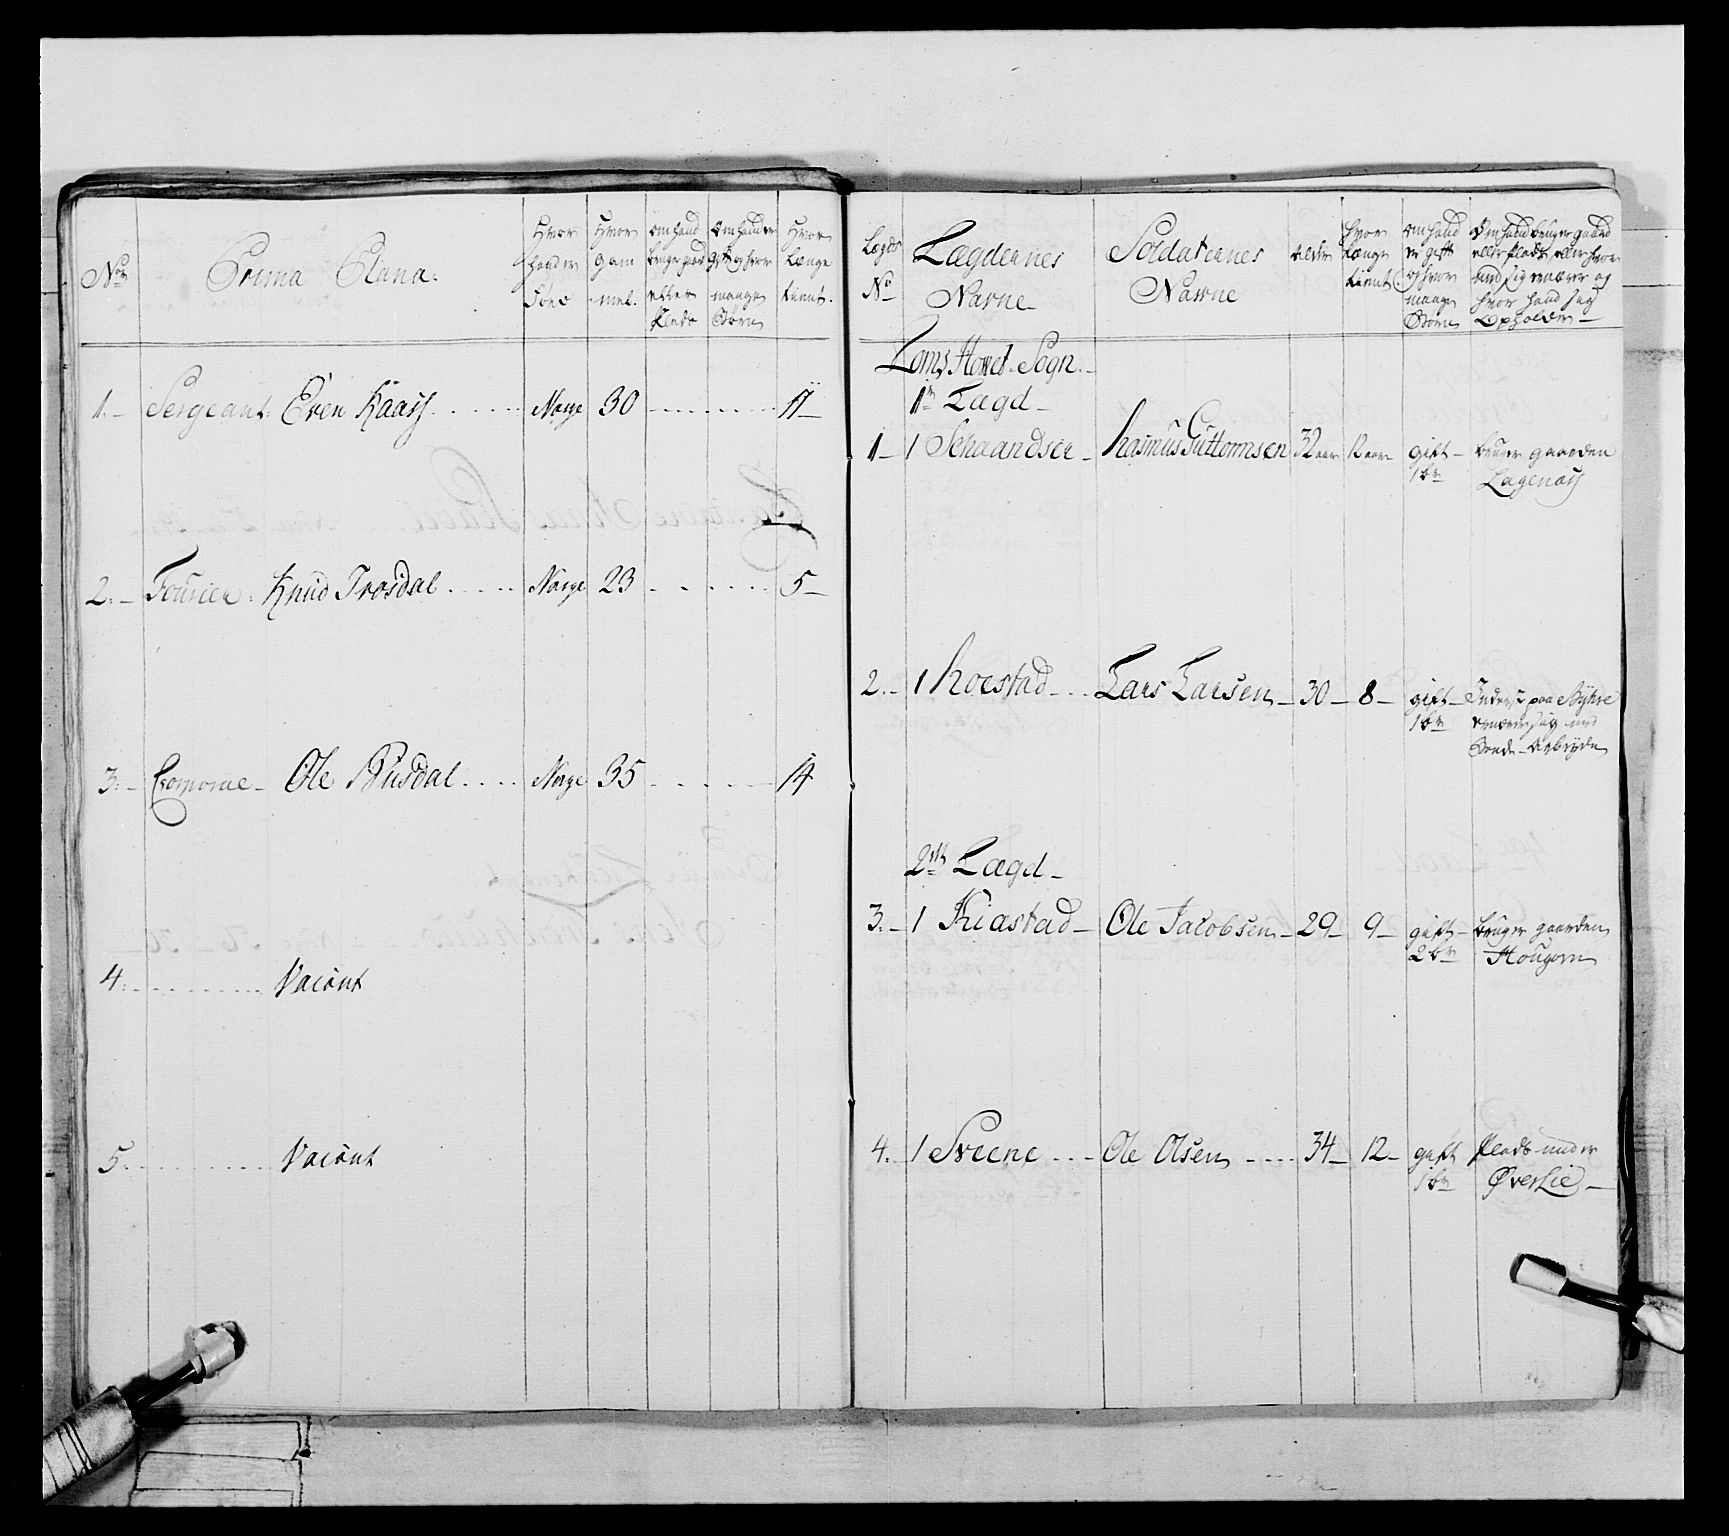 No
Prima Plana.
Hvor
hand er
Føes
Hvor
gam
mel.
om hand
bruger gaard
eller
Plads
Om hand er
gift og hvor
mange
Børn
Hvor
Længe
tient.
1. Sergeant. Even Kaas Norge 30 11
2. Fourier. Knud Trosdal Norge 23 5
3. Corporal Ole Busdal Norge 35 14
4. Vacant
5. Vacant
Lægds
No
Lægdernes
Navne
Soldaternes
Navne
Alder
hvor
Længe
tient.
om hand
er gift
og hvor
mange
Børn
Om hand bruger gaard
eller Plads, eller hvor
med sig nærer og
hvor hand sig
Opholder
Loms Hovet Sogn.
1te Lægd
1 1 Schaandser Rasmus Guttormsen 32 aar 12 aar gift bruger gaarden
1 bn
2. 1 Roestad Lars Larsen 30 8 gift Inderst paa
1 bn sig med
Bonde Arbeyde
2de Lægd
3. 1 Kiastad Ole Jacobsen 29 9 gift bruger gaarden
2 bn Hougom
4. 1 Sveene Ole Olsen 34 12 gift Plads under
1 bn Øverlie